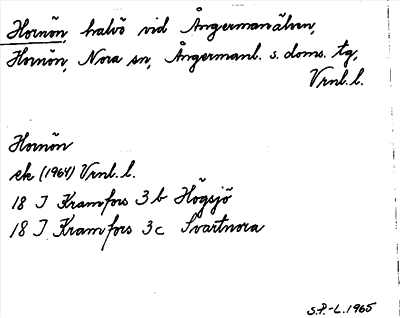 Hornön, halvö vid Ångermanälven,
Hornön, Nora sn, Ångermanl. s. doms. tg,
Vrnl. l.
Hornön
ek (1964) Vrnl. l.
18 I Kramfors 3b Högsjö
18 I Kramfors 3c Svartnora
S.P.-L. 1965